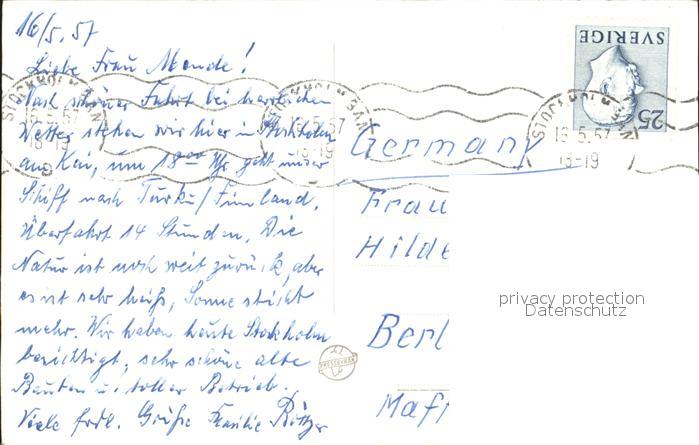 16/5.57
Liebe Frau Mende!
Nach schöner Fahrt bei herrlichem
Wetter stehen wir hier in Stockholm
am Kai, um 18°° Uhr geht unser
Schiff nach Turku/Finnland.
Überfahrt 14 Stunden. Die
Natur ist noch weit zurück, aber
es ist sehr heiß, Sonne sticht
mehr. Wir haben heute Stockholm
besichtigt, sehr schöne alte
Bauten u. toller Betrieb.
Viele frdl. Grüße Familie
SVERIGE
25
STOCKHOLM BAN
16.5.57
18-19
STOCKHOLM BAN
16.5.57
18-19
STOCKHOLM BAN
16.5.57
18-19
Germany
Frau
Hilde
Berl
PRESSBYRÅN
privacy protection
Datenschutz